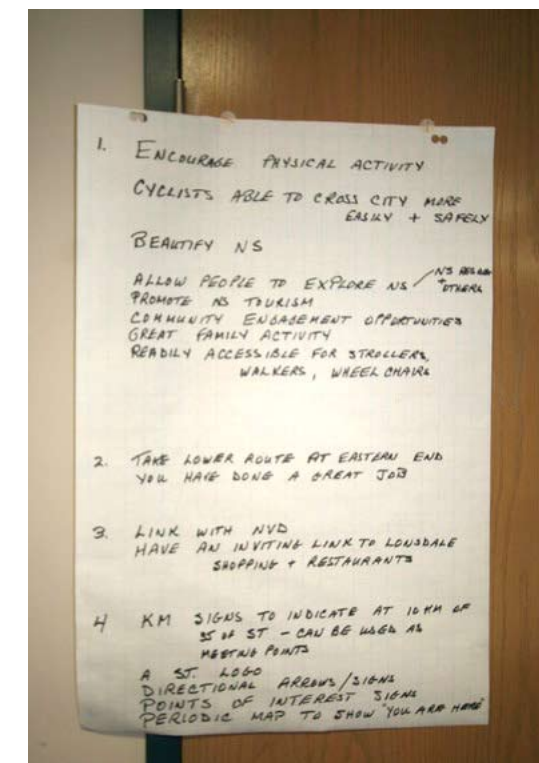 1. ENCOURAGE PHYSICAL ACTIVITY
CYCLISTS ABLE TO CROSS CITY MORE
EASILY + SAFELY
BEAUTIFY NS
ALLOW PEOPLE TO EXPLORE NS / NS
+ OTHERS
PROMOTE NS TOURISM
COMMUNITY ENGAGEMENT OPPORTUNITIES
GREAT FAMILY ACTIVITY
READILY ACCESSIBLE FOR STROLLERS,
WALKERS, WHEEL CHAIRS
2. TAKE LOWER ROUTE AT EASTERN END
YOU HAVE DONE A GREAT JOB
3. LINK WITH NVD
HAVE AN INVITING LINK TO LONSDALE
SHOPPING + RESTAURANTS
4 KM SIGNS TO INDICATE AT 10 KM OF
35 OF ST - CAN BE USED AS
MEETING POINTS
A ST. LOGO
DIRECTIONAL ARROWS/SIGNS
POINTS OF INTEREST SIGNS
PERIODIC MAP TO SHOW "YOU ARE HERE"